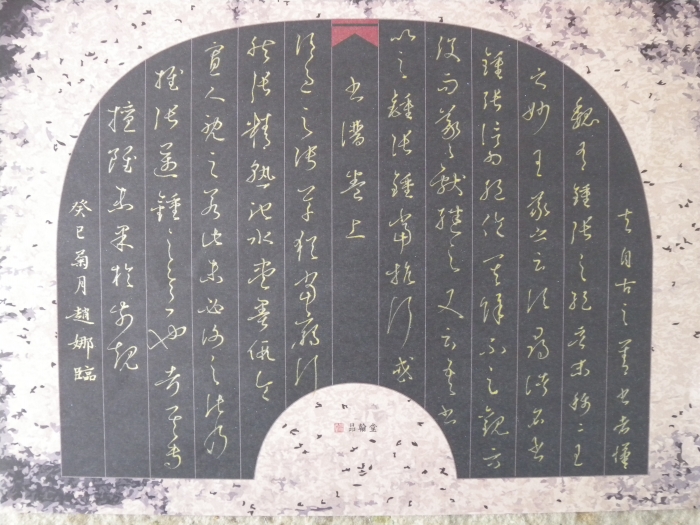 夫自古之善書者漢
魏有鍾張之絕晉末稱二王
之妙王羲之云頃尋諸名書
鍾張信為絕倫其餘不足觀可
沒而羲獻繼之又云吾書
比之鍾張鍾當抗行或
書譜卷上
謂過之張草猶當雁行
然張精熟池水盡墨假令
寡人耽之若此未必謝之此乃
推張邁鍾之意也考其專
擅雖未果於前規
癸巳菊月趙娜臨
品翰堂